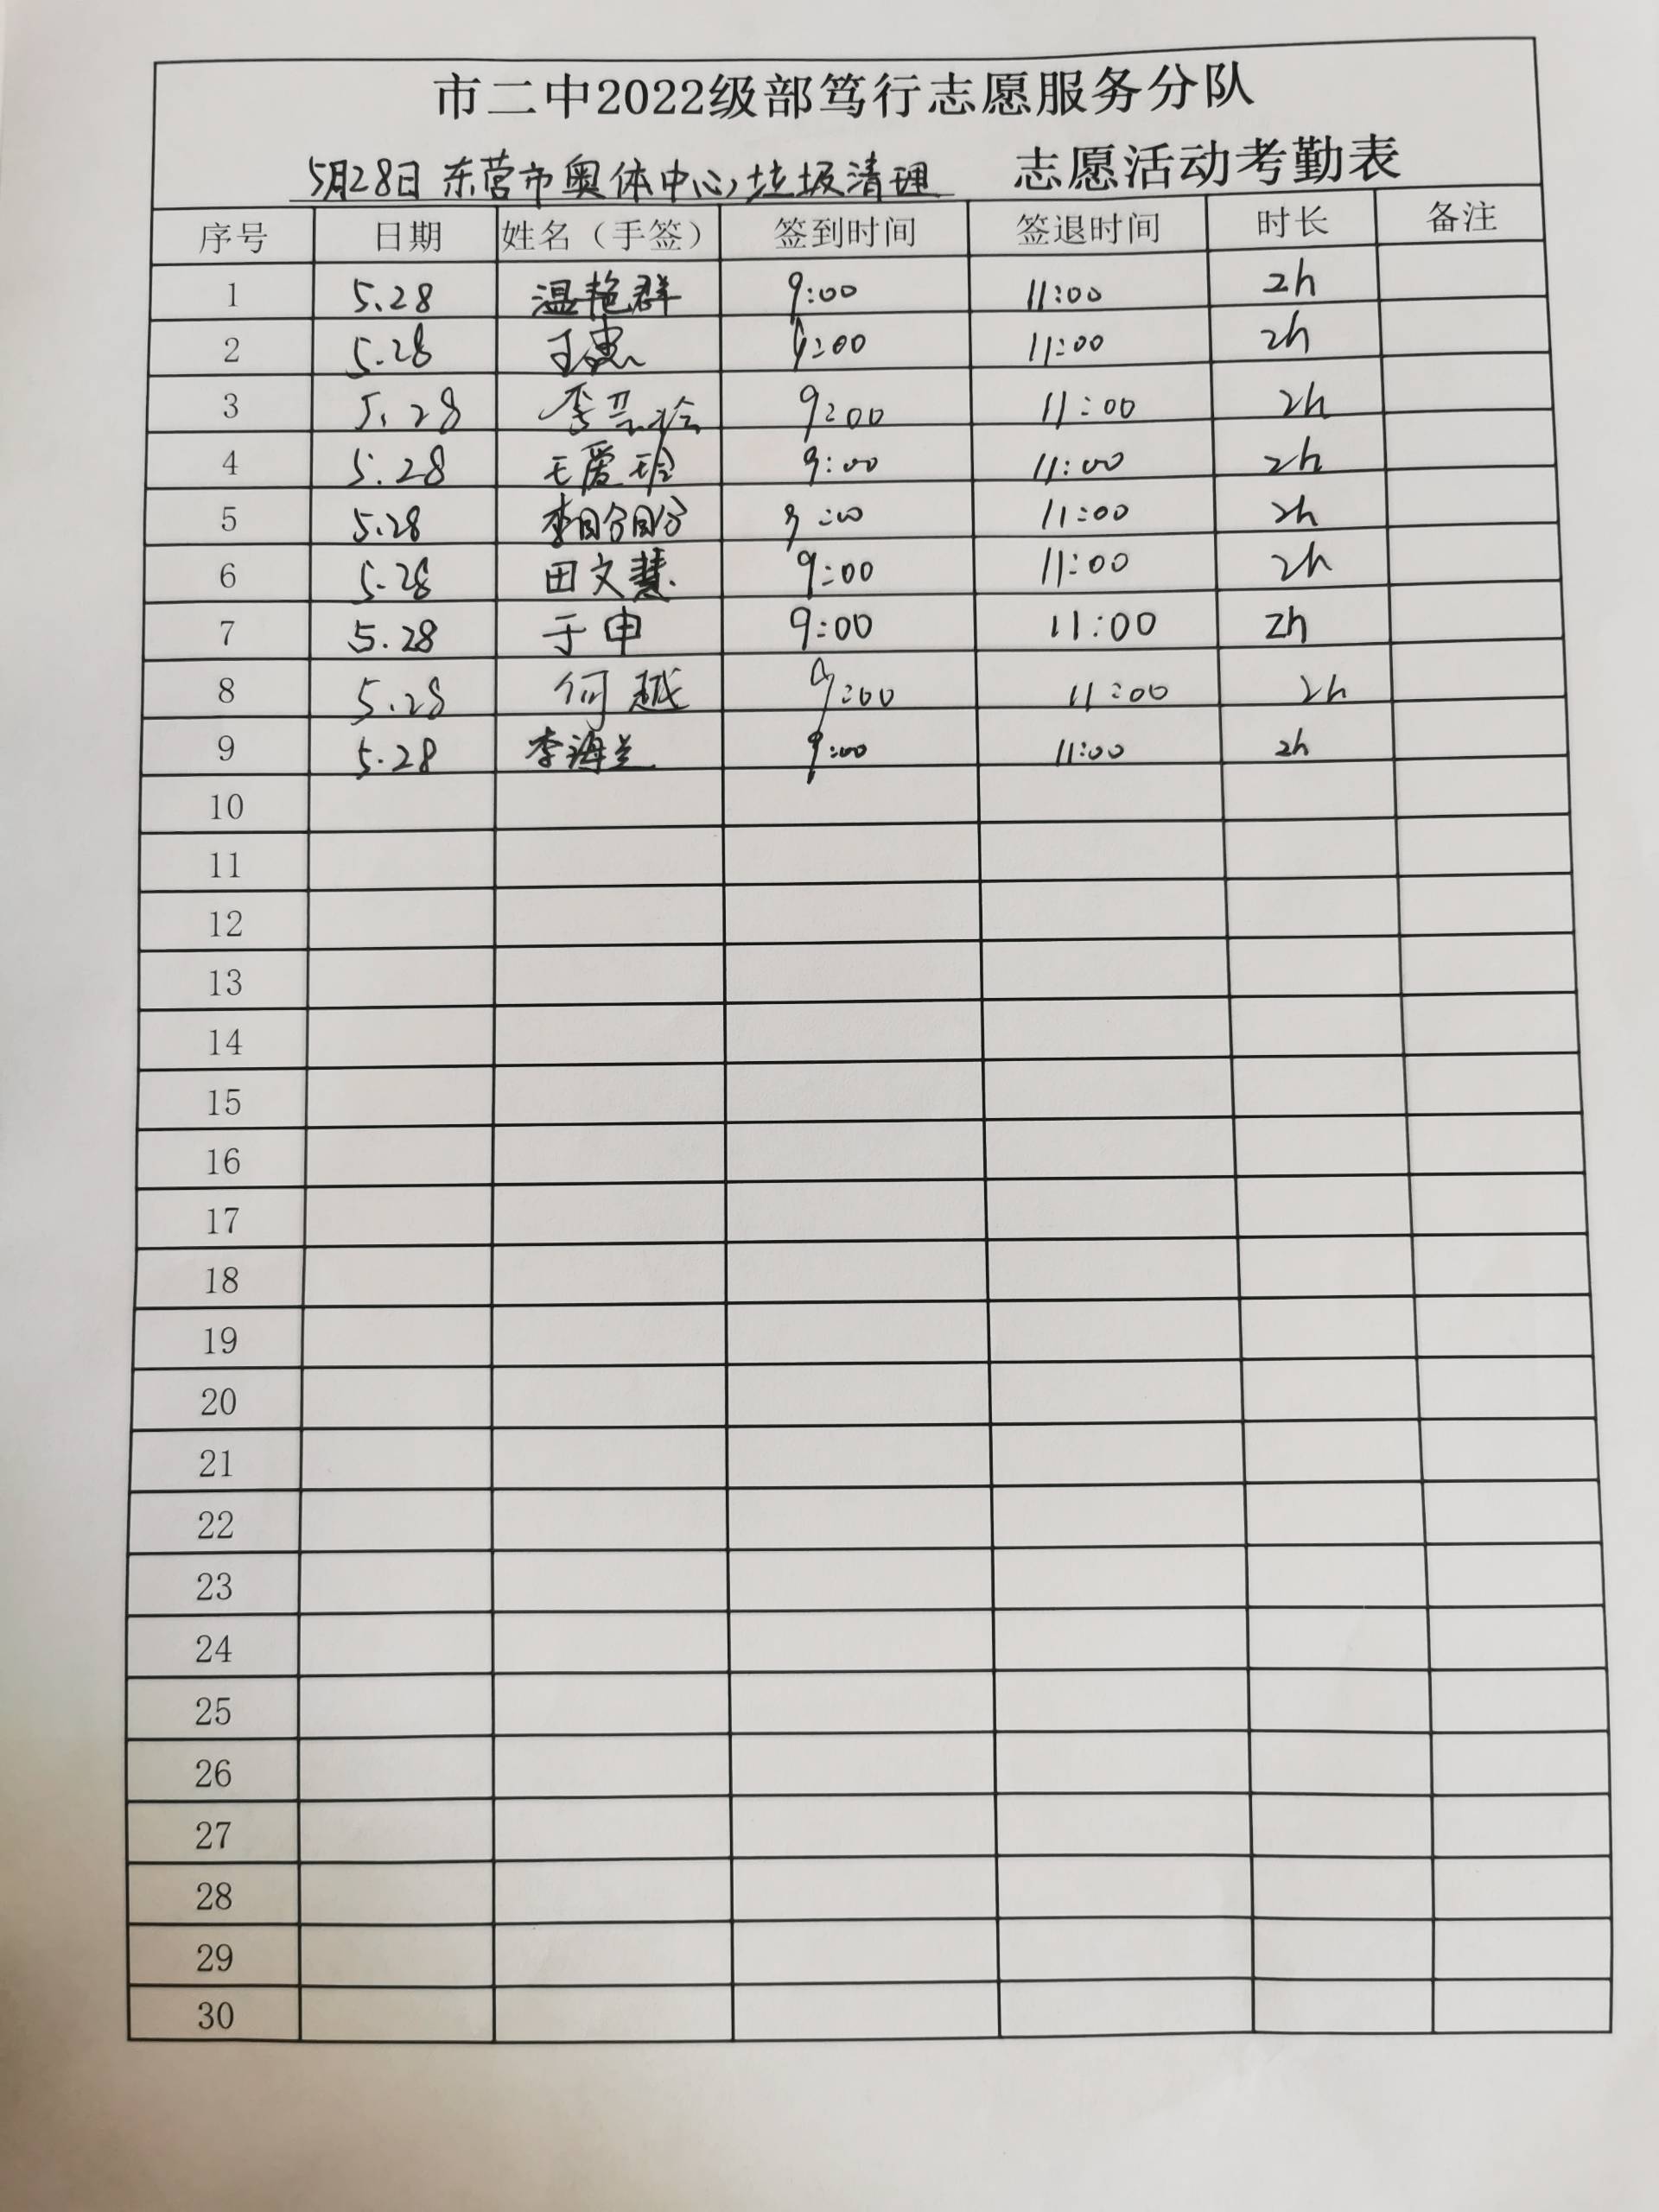 市二中2022级部笃行志愿服务分队
5月28日 东营市奥体中心垃圾清理 志愿活动考勤表
序号 日期 姓名（手签） 签到时间 签退时间 时长 备注
1 5.28 温艳群 9:00 11:00 2h
2 5.28 9:00 11:00 2h
3 5.28 9:00 11:00 2h
4 5.28 王爱玲 9:00 11:00 2h
5 5.28 李盼盼 9:00 11:00 2h
6 5.28 田文慧 9:00 11:00 2h
7 5.28 于申 9:00 11:00 2h
8 5.28 何越 9:00 11:00 2h
9 5.28 李海兰 9:00 11:00 2h
10
11
12
13
14
15
16
17
18
19
20
21
22
23
24
25
26
27
28
29
30